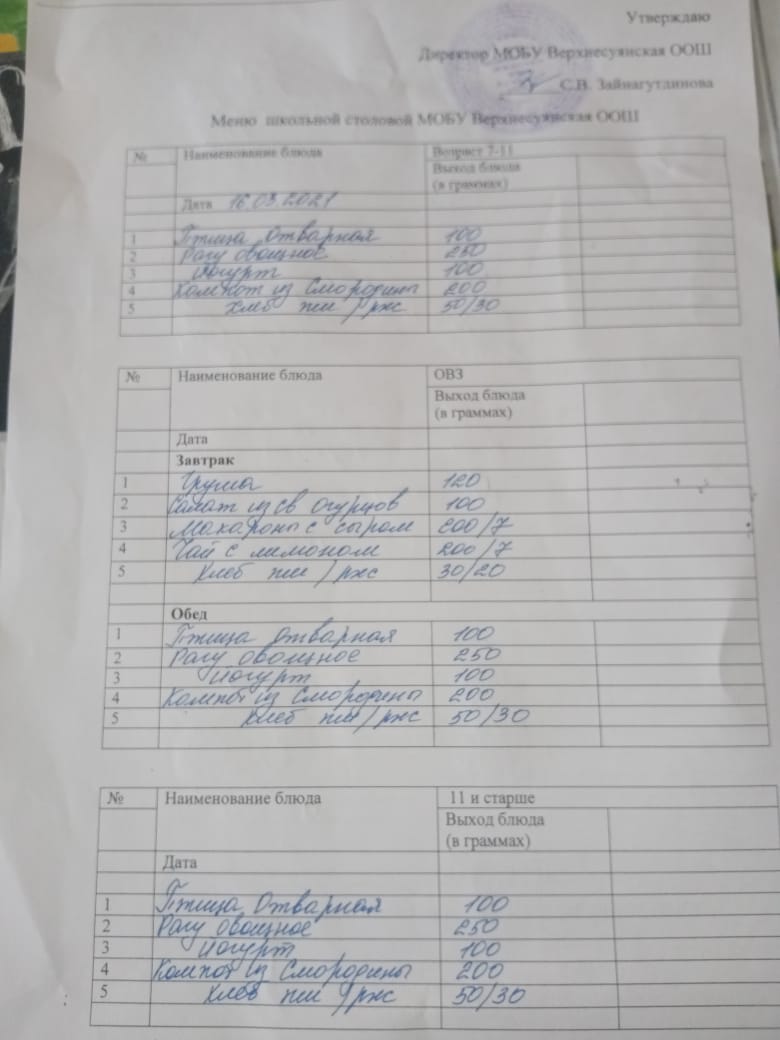 Утверждаю
Директор МОБУ Верхнесуянская ООШ
С.В. Зайнагутдинова
Меню школьной столовой МОБУ Верхнесуянская ООШ
№ Наименование блюда Возраст 7-11
Выход блюда
(в граммах)
Дата 16.03.2021
1 Птица отварная 100
2 Рагу овощное 250
3 Йогурт 100
4 Компот из смородины 200
5 Хлеб пш/ржс 50/30
№ Наименование блюда ОВЗ
Выход блюда
(в граммах)
Дата
Завтрак
1 Груша 120
2 Салат из св огурцов 100
3 Макароны с сыром 200/7
4 Чай с лимоном 200/7
5 Хлеб пш/ржс 30/20
Обед
1 Птица отварная 100
2 Рагу овощное 250
3 Йогурт 100
4 Компот из смородины 200
5 Хлеб пш/ржс 50/30
№ Наименование блюда 11 и старше
Выход блюда
(в граммах)
Дата
1 Птица Отварная 100
2 Рагу овощное 250
3 Йогурт 100
4 Компот из Смородины 200
5 Хлеб пш/ржс 50/30